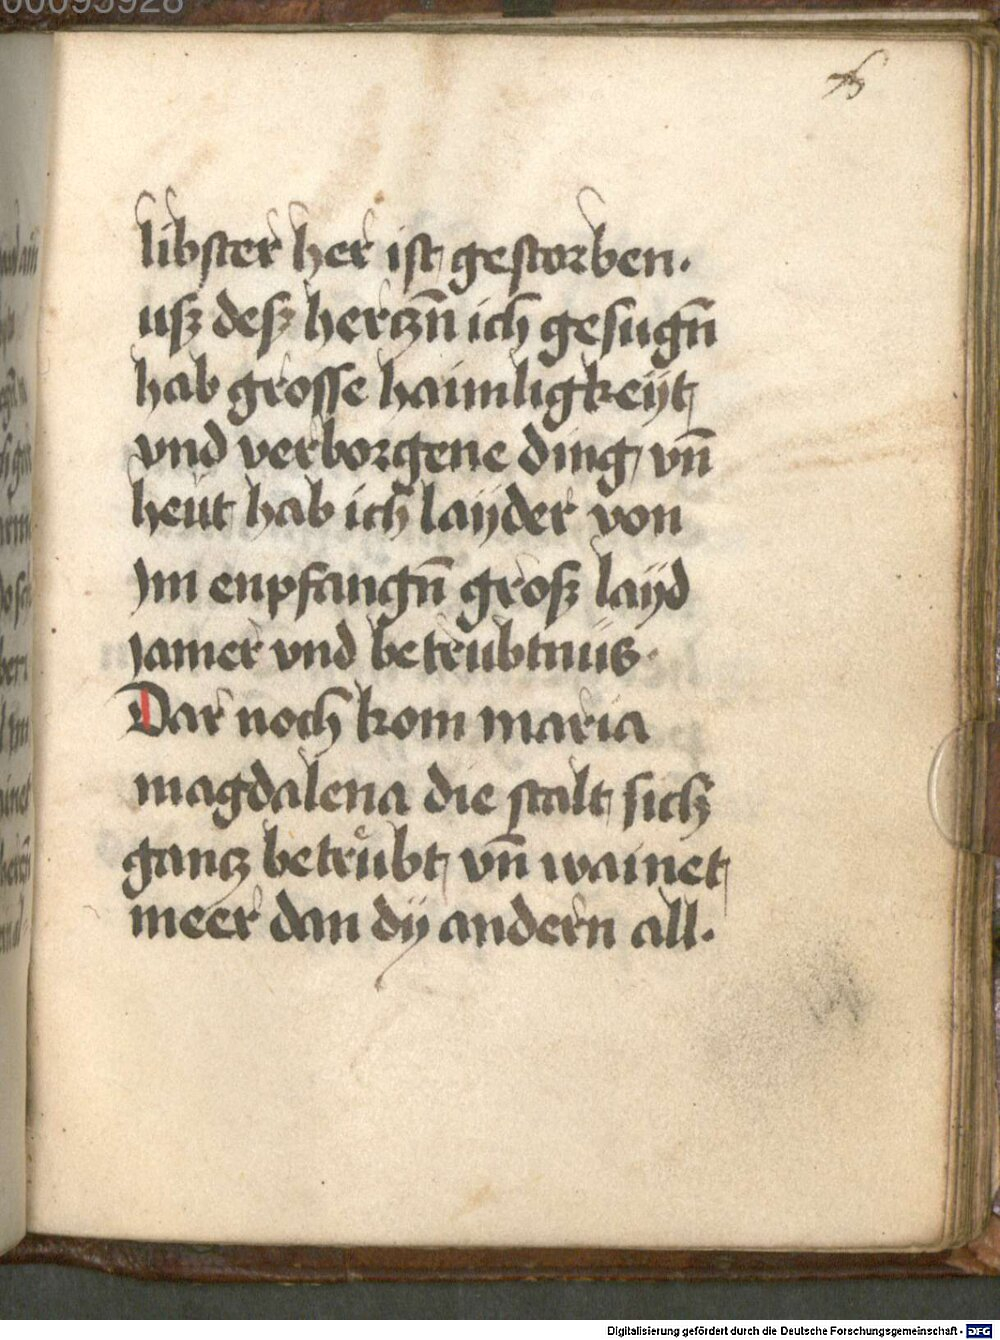 libster her ist gestorben.
usz desz hertzn̄ ich gesugn̄
hab grosse haimligkeÿt
vnd verborgene ding vn̄
heüt hab ich laÿder von
jm enpfangn̄ grosz laÿd
jamer vnd betrubtnüs.
Dar noch kom maria
magdalena die stalt sich
gantz betrübt vn̄ wainet
meer dan dÿ andern all.
00095928
Digitalisierung gefördert durch die Deutsche Forschungsgemeinschaft - DFG